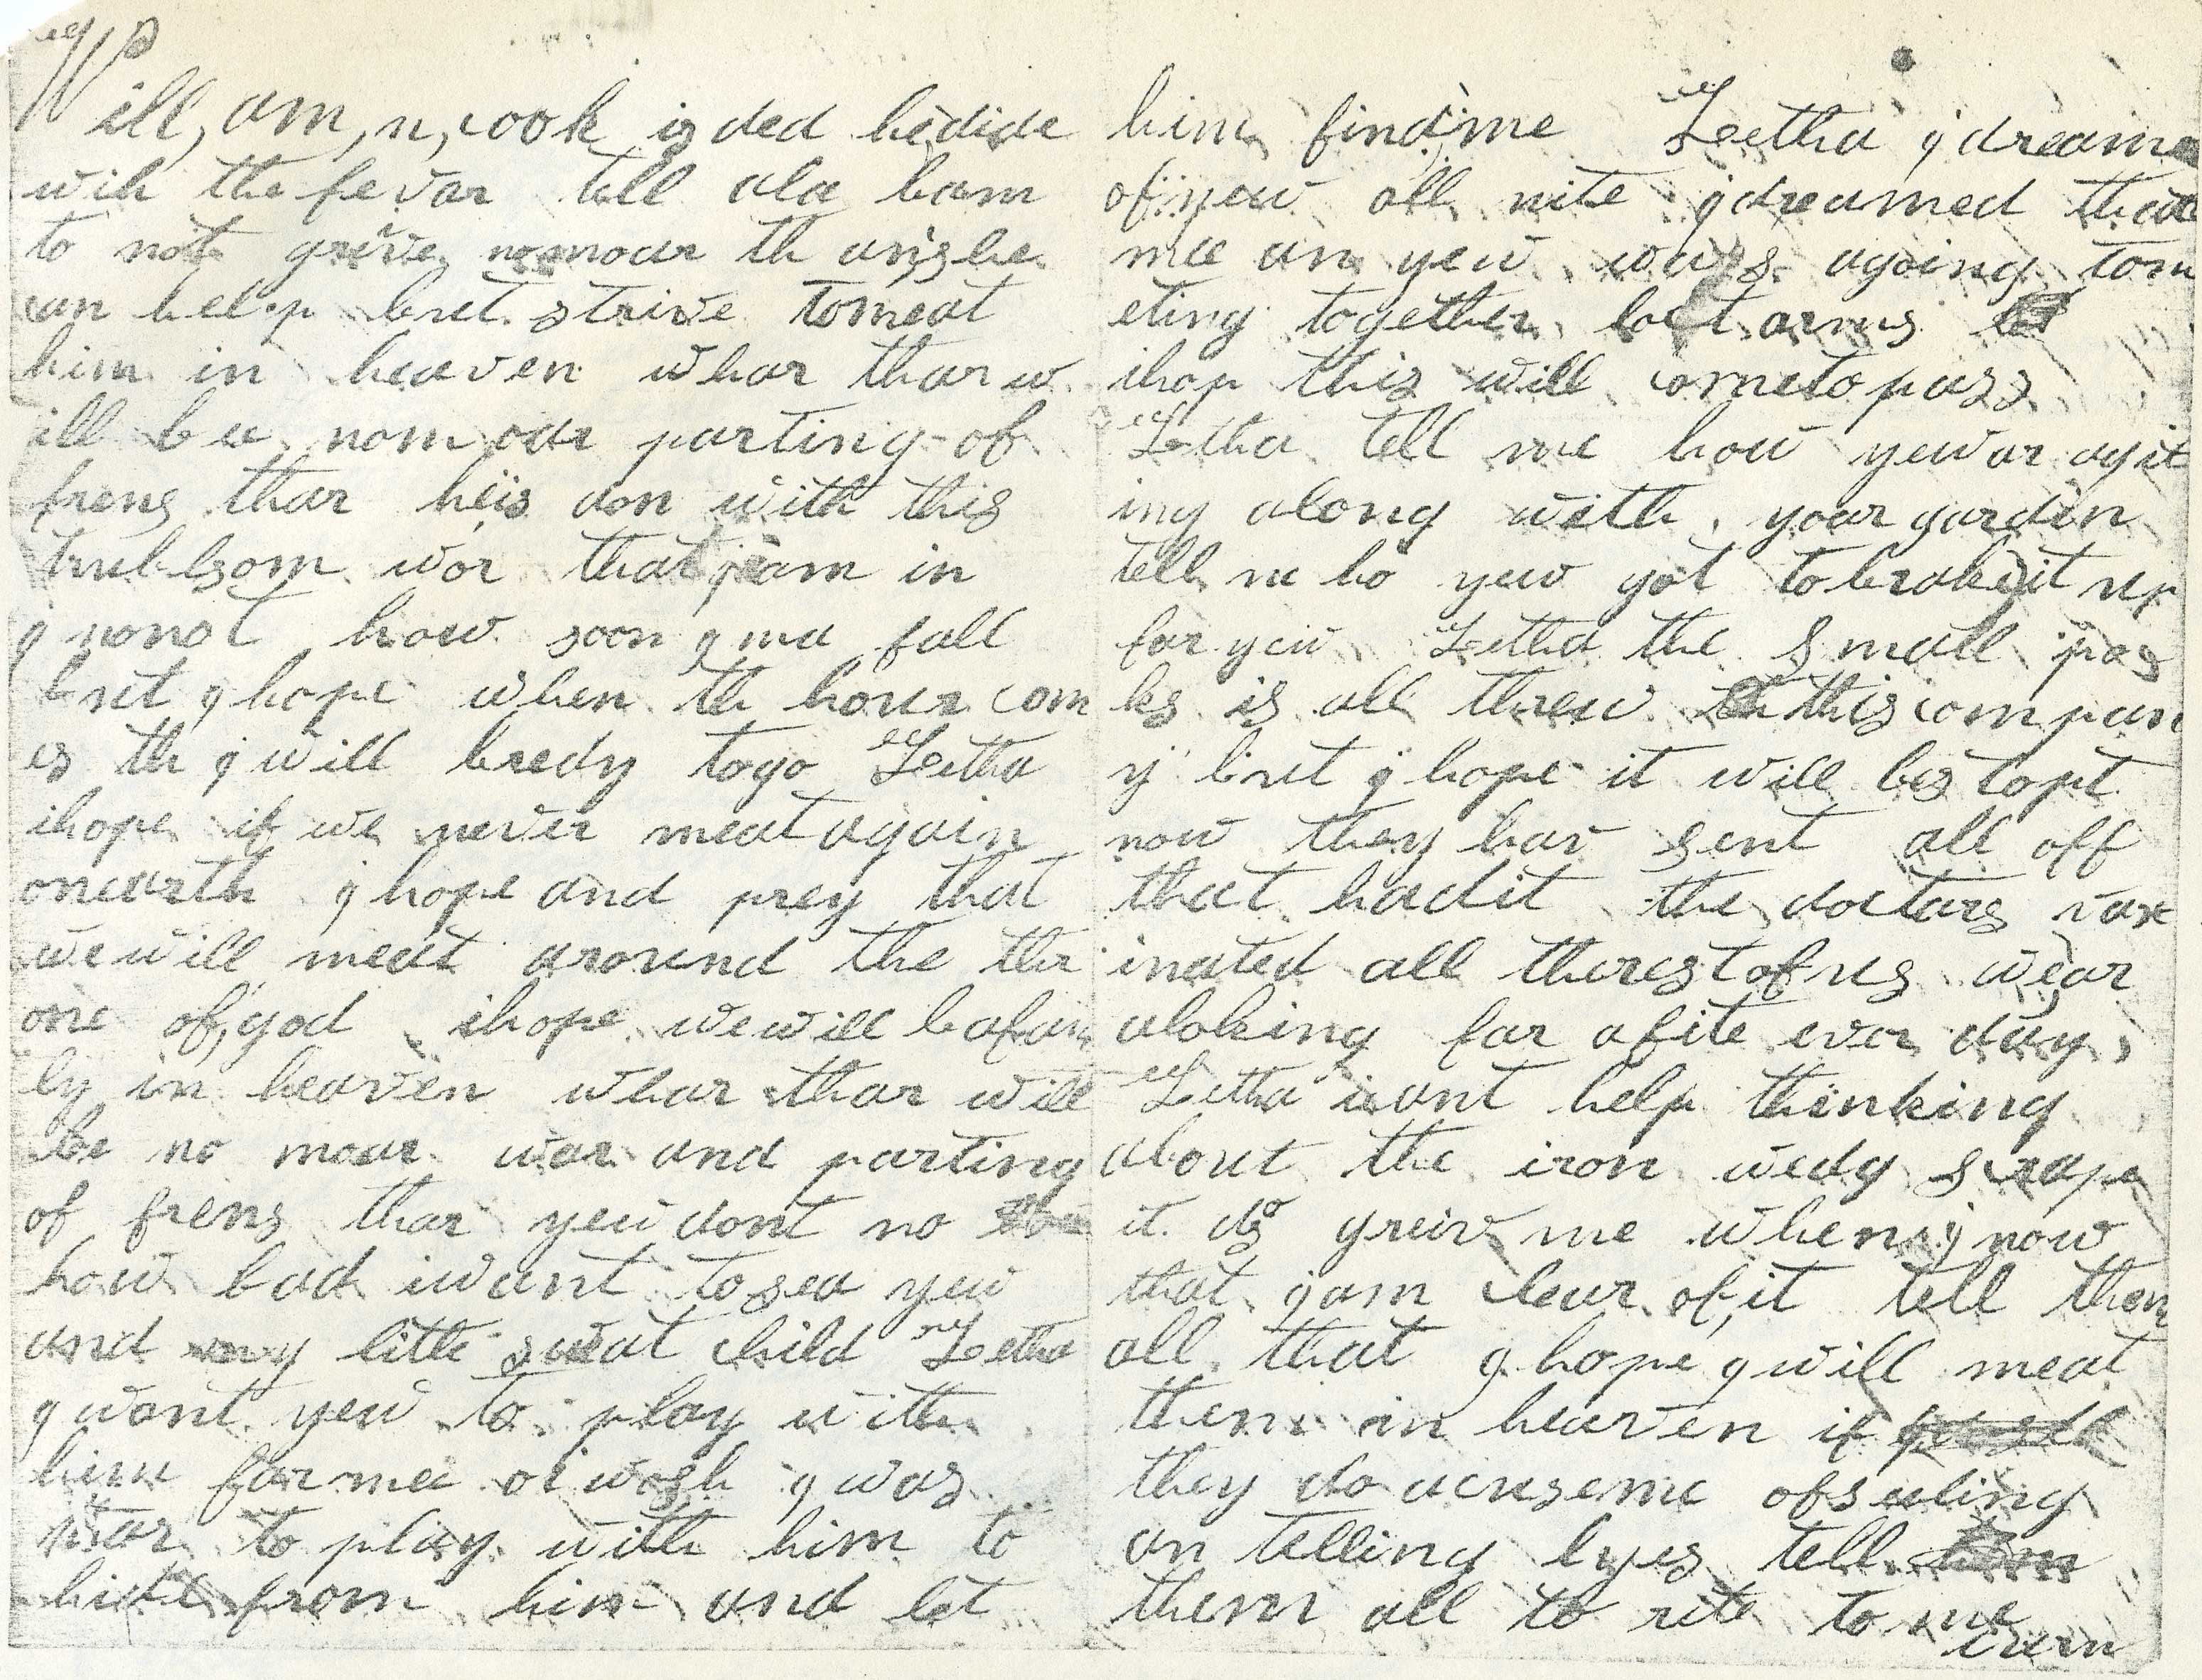 Will,am,n,cook is ded hedide
wih the fevar tell ala bam
to not grive nomoar th anshe
can help but strive tomeat
him in heaven whar thar w
ill be nomoar parting of
frens thar heis don with this
trublsom wor that jam in
j nonot how soon j ma fall
but j hope when th hour com
es th j will bredy togo Letha
ihope if we never meatagain
onearth j hope and prey that
wewill meat around the thr
one of,god ihope wewill bafam
ly in heaven whar thar will
be no moar war and parting
of frens thar yew dont no
how bad iwant tosea yew
and my little sweat child Letha
j want yew to play with
him farmea oiwosh j was
thar to play with him to
hide from him and let
him find me Leetha j dreamed
of yew all nite jdreamed that
me an yew was agoing tom
eting together loct arms
ihop this will cometopass
Letha tell me how yewar agit
ing along with your gardin
tell me ho yew got tobrakeit up
for yew Letha the small pos
ks is all threw thiscompan
y but j hope it will bestopt
now they hav sent all off
that hadit the doctars vax
inated all therestofus wear
aloking far afite ever day,
Letha icant help thinking
about the iron wedg scrape
it do greiv me when j now
that jam clear of,it tell them
all that j hope j will meat
them in heaven if
they do acuseme ofsteling
an telling lyes tell
them all to rite to me